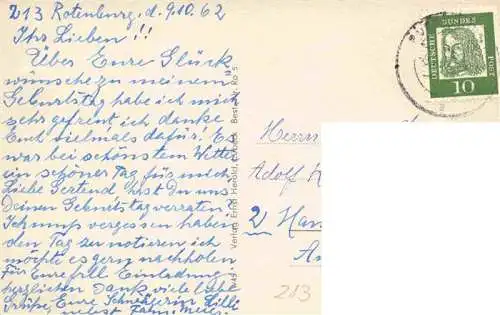 213 Rotenburg, d. 9.10.62
Ihr Lieben!!
Über Eure Glück
wünsche zu meinem
Geburtstag habe ich mich
sehr gefreut ich danke
Euch vielmals dafür! Es
war bei schönstem Wetter
ein schöner Tag für mich
Liebe Gertend hast Du uns
Deinen Geburtstag verraten?
Ich muss vergessen haben
den Tag zu notieren ich
möchte es gern nachholen
Für Eure Einladung
herzlichen Dank viele liebe
Grüße, Eure Schwägerin Lille
nebst
Verlag Ernst Herold, Best. Nr. Ro 5
DEUTSCHE BUNDES POST
10
Herrn
Adolf
2 Ham
213